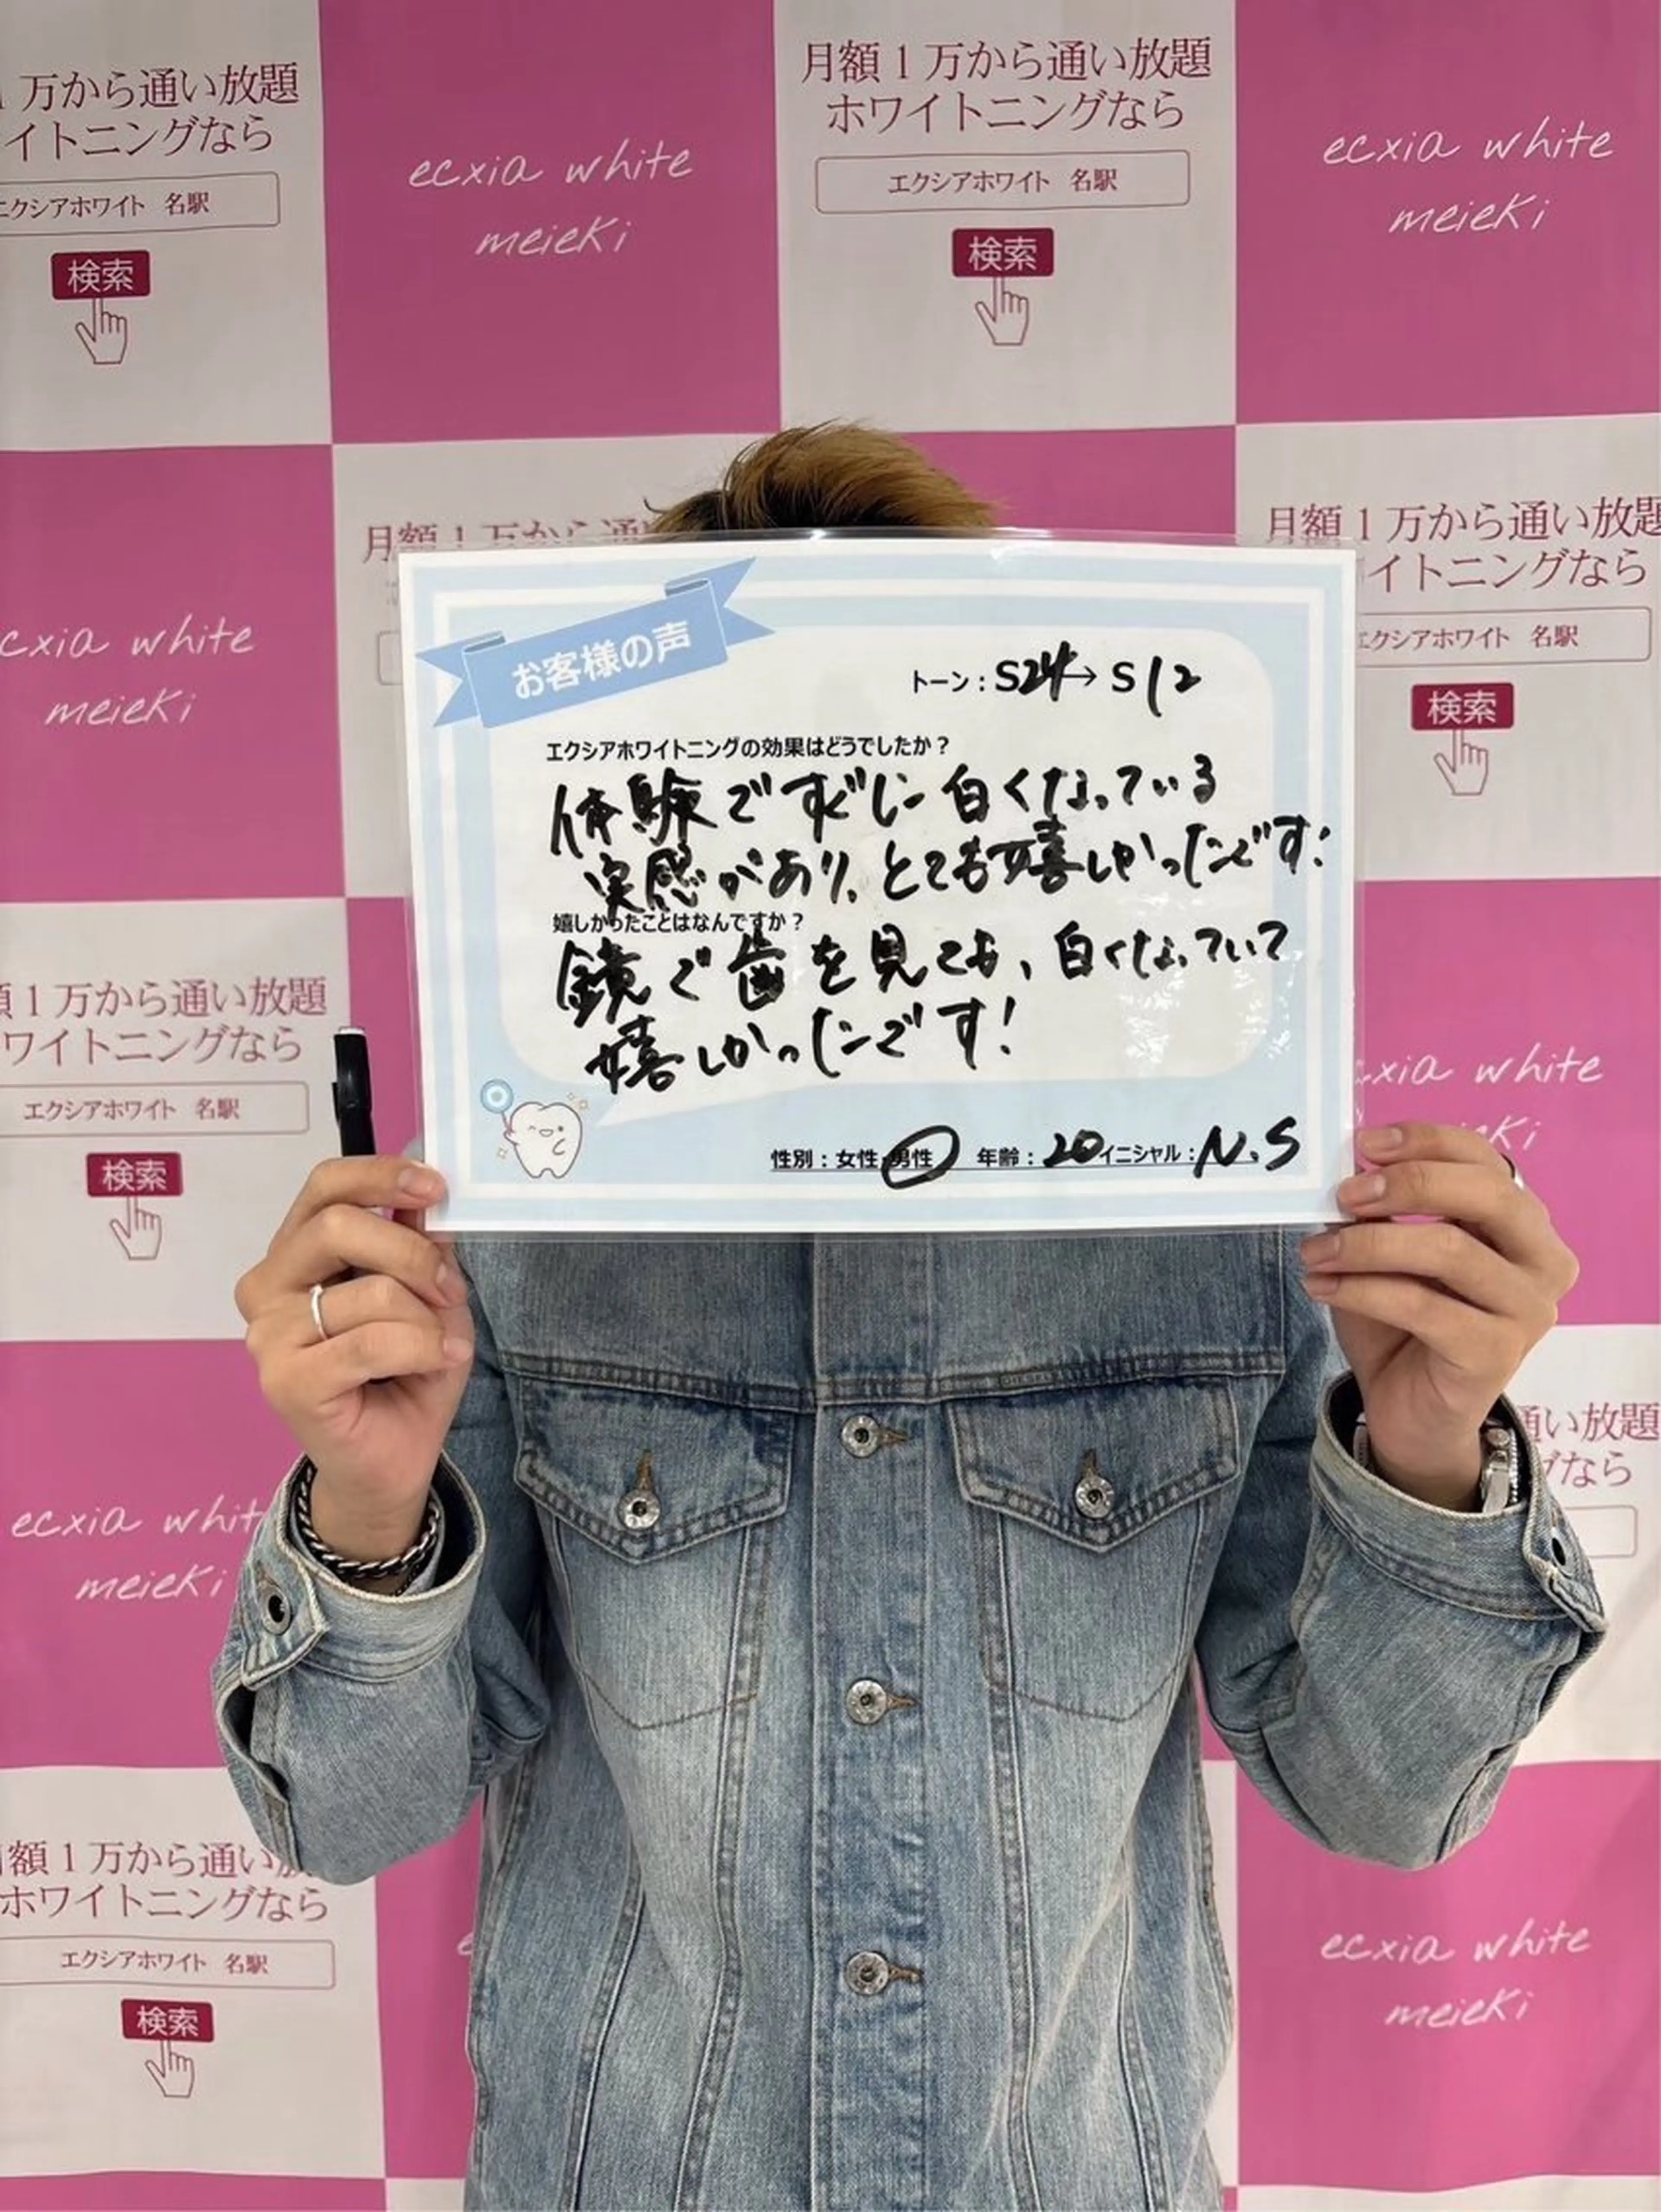 1万から通い放題
イトニングなら
エクシアホワイト 名駅
検索
ecxia white
meieki
月額1万から通い放題
ホワイトニングなら
エクシアホワイト 名駅
検索
ecxia white
meieki
cxia white
meieki
月額1万から通い
月額1万から通い放題
イトニングなら
エクシアホワイト 名駅
検索
お客様の声
トーン:S24→S12
エクシアホワイトニングの効果はどうでしたか?
体験ですぐに白くなっている
実感があり、とても嬉しかったです!
嬉しかったことはなんですか?
鏡で歯を見ても、白くなっていて
嬉しかったです!
性別:女性 男性 年齢:20 イニシャル:N.S
額1万から通い放題
ワイトニングなら
エクシアホワイト 名駅
検索
cxia white
eki
ecxia whit
meieki
通い放題
グなら
額1万から通い放
ホワイトニングなら
エクシアホワイト 名駅
検索
e
ecxia white
meieki